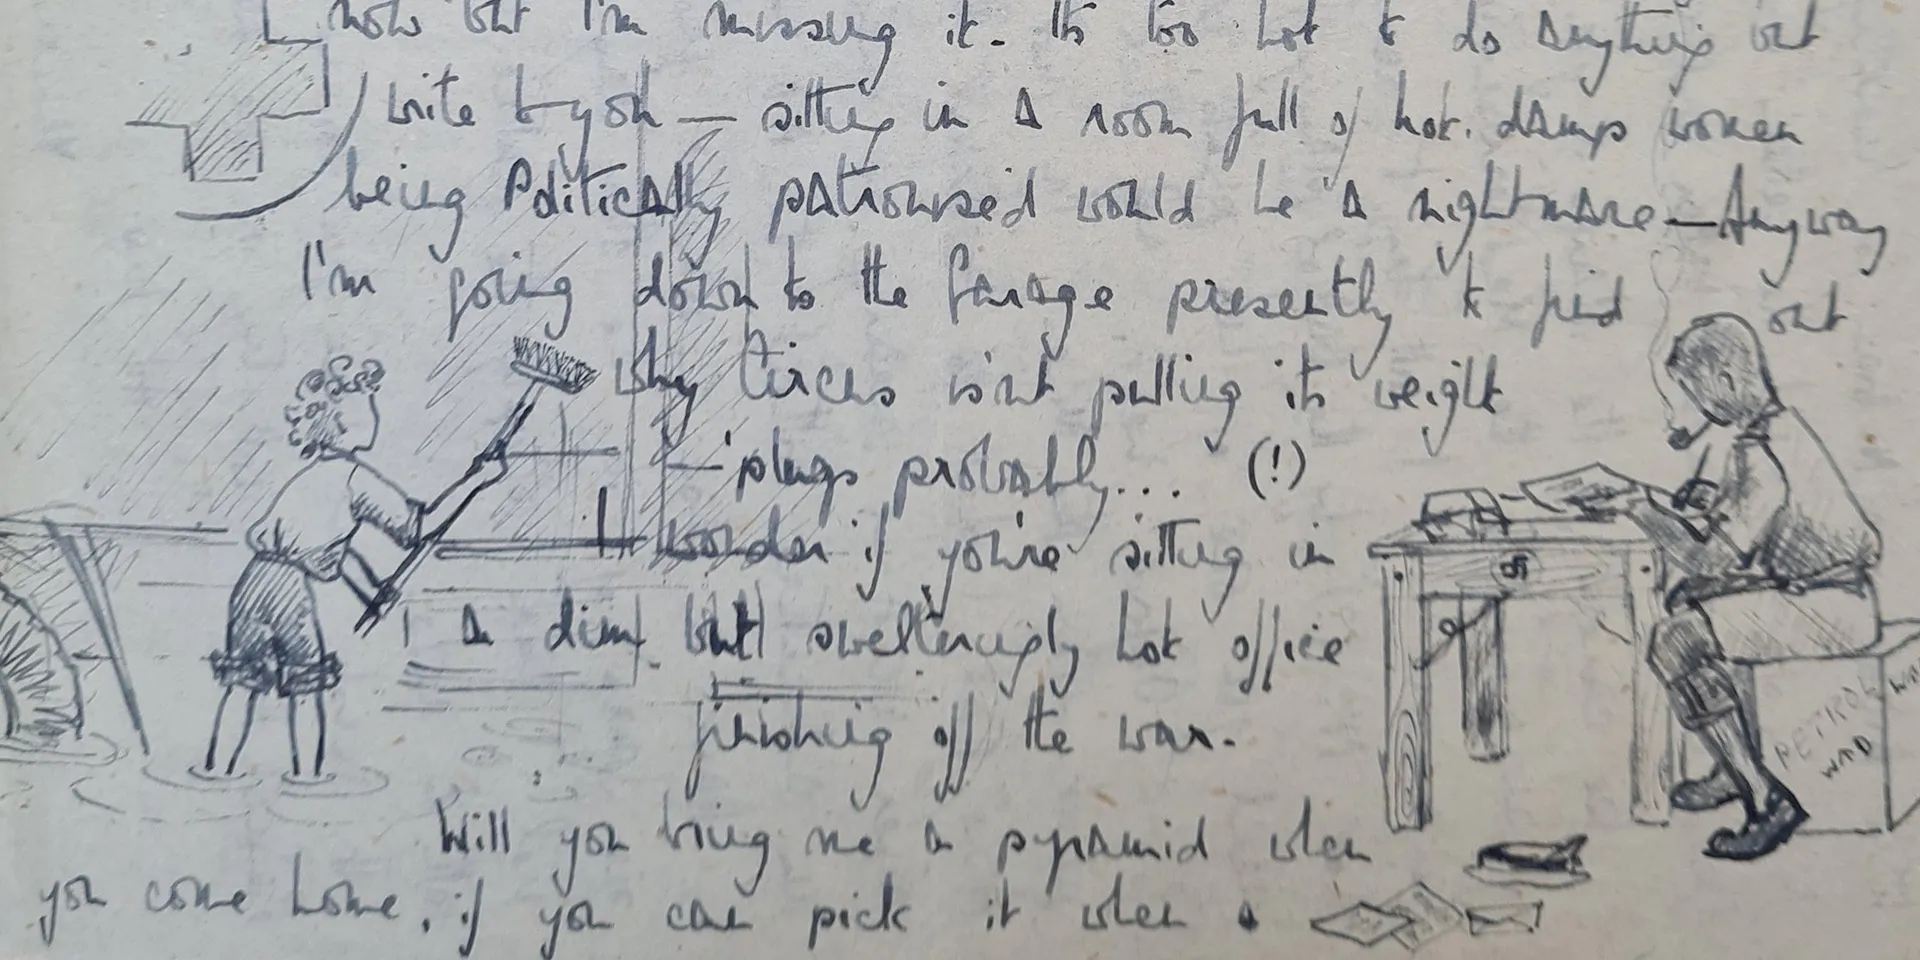 now but I'm missing it. Its too hot to do anything but
write to you — sitting in a room full of hot, damp women
being Politically patronised would be a nightmare — Anyway
I'm going down to the Garage presently to find out
why Circus isn't pulling its weight
— 'plugs probably... (!)
I wonder if you're sitting in
a dim but swelteringly hot office
finishing off the war.
Will you bring me a pyramid when
you come home, if you can pick it when a
PETROL
WND